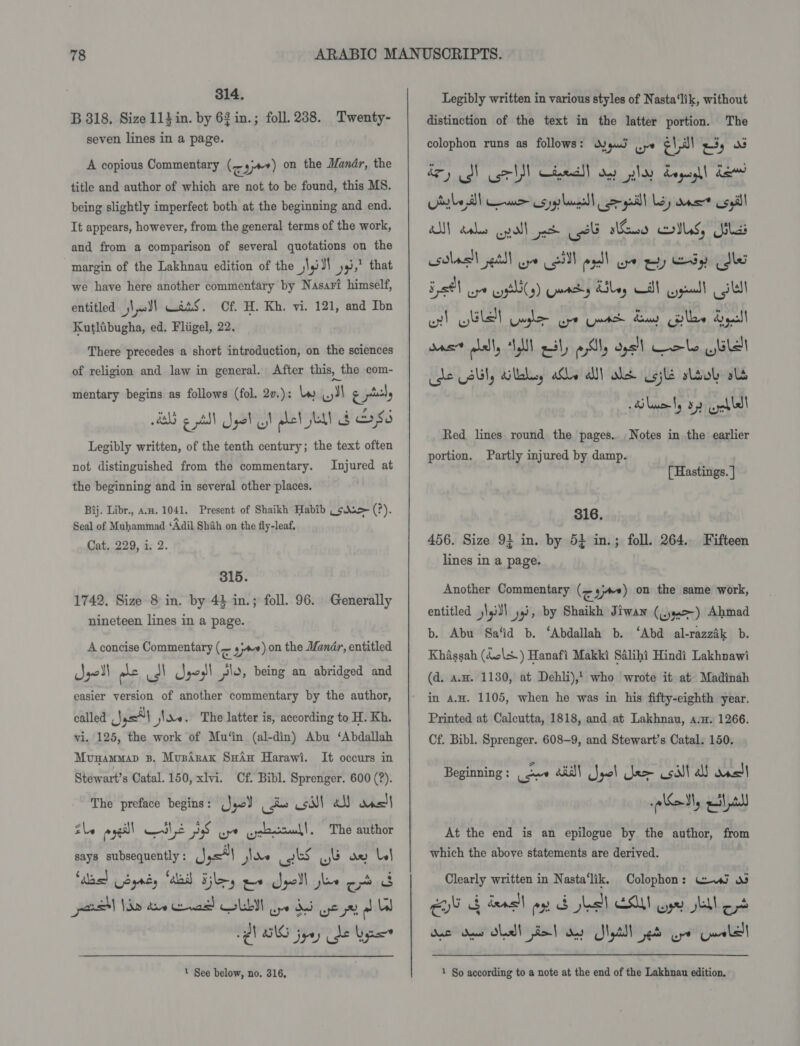 78 ARABIC MANUSCRIPTS.
314.
B 318. Size 11¼ in. by 6¾ in.; foll. 238. Twenty-
seven lines in a page.
A copious Commentary (ممزوج) on the Manár, the
title and author of which are not to be found, this MS.
being slightly imperfect both at the beginning and end.
It appears, however, from the general terms of the work,
and from a comparison of several quotations on the
margin of the Lakhnau edition of the نور الانوار,¹ that
we have here another commentary by Nasafí himself,
entitled كشف الاسرار. Cf. H. Kh. vi. 121, and Ibn
Kutlúbugha, ed. Flügel, 22.
There precedes a short introduction, on the sciences
of religion and law in general. After this, the com-
mentary begins as follows (fol. 2v.): ولنشرع الآن بما
ذكرت فى المنار اعلم ان اصول الشرع ثلثة.
Legibly written, of the tenth century; the text often
not distinguished from the commentary. Injured at
the beginning and in several other places.
Bij. Libr., A.H. 1041. Present of Shaikh Habib جندى (?).
Seal of Muḥammad ‘Ádil Sháh on the fly-leaf.
Cat. 229, i. 2.
315.
1742. Size 8 in. by 4¼ in.; foll. 96. Generally
nineteen lines in a page.
A concise Commentary (ممزوج) on the Manár, entitled
دائر الوصول الى علم الاصول, being an abridged and
easier version of another commentary by the author,
called مدار الفحول. The latter is, according to H. Kh.
vi. 125, the work of Mu‘ín (al-din) Abu ‘Abdallah
Muhammad b. Mubárak Sháh Harawi. It occurs in
Stewart's Catal. 150, xlvi. Cf. Bibl. Sprenger. 600 (?).
The preface begins: الحمد لله الذى سقى لاصول
المستنبطين من كوثر غرائب الفهوم ماءً. The author
says subsequently: اما بعد فان كتابى مدار الفحول
فى شرح منار الاصول مع وجازة لفظه، وغموض لحظه،
لما لم يعر عن نبذ من الاطناب لخصت منه هذا المختصر
محتويا على رموز نكاته الخ.
¹ See below, no. 316.
Legibly written in various styles of Nasta‘lik, without
distinction of the text in the latter portion. The
colophon runs as follows: قد وقع الفراغ من تسويد
نسخة الموسومة بداير بيد الضعيف الراجى الى رحمة
القوى محمد رضا القنوجى النيسابورى حسب الفرمايش
فضائل وكمالات دستگاه قاضى خير الدين سلمه الله
تعالى بوقت ربع من اليوم الاثنى من الشهر الجمادى
الثانى السنون الف ومائة وخمس (و)ثلثون من الهجرة
النبوية مطابق بسنة خمس من جلوس الخاقان ابن
الخاقان صاحب الجود والكرم رافع اللواء والعلم محمد
شاه بادشاه غازى خلد الله ملكه وسلطانه وافاض على
العالمين بره واحسانه.
Red lines round the pages. Notes in the earlier
portion. Partly injured by damp.
[Hastings.]
316.
456. Size 9¼ in. by 5¼ in.; foll. 264. Fifteen
lines in a page.
Another Commentary (ممزوج) on the same work,
entitled نور الانوار, by Shaikh Jíwan (جيون) Ahmad
b. Abu Sa‘íd b. ‘Abdallah b. ‘Abd al-razzák b.
Khássah (خاصه) Hanafi Makki Sálihi Hindi Lakhnawi
(d. A.H. 1130, at Dehli),¹ who wrote it at Madinah
in A.H. 1105, when he was in his fifty-eighth year.
Printed at Calcutta, 1818, and at Lakhnau, A.H. 1266.
Cf. Bibl. Sprenger. 608–9, and Stewart's Catal. 150.
Beginning: الحمد لله الذى جعل اصول الفقه مبنى
للشرائع والاحكام.
At the end is an epilogue by the author, from
which the above statements are derived.
Clearly written in Nasta‘lik. Colophon: قد تمت
شرح المنار بعون الملك الجبار فى يوم الجمعة فى تاريخ
الخامس من شهر الشوال بيد احقر العباد سيد عبد
¹ So according to a note at the end of the Lakhnau edition.